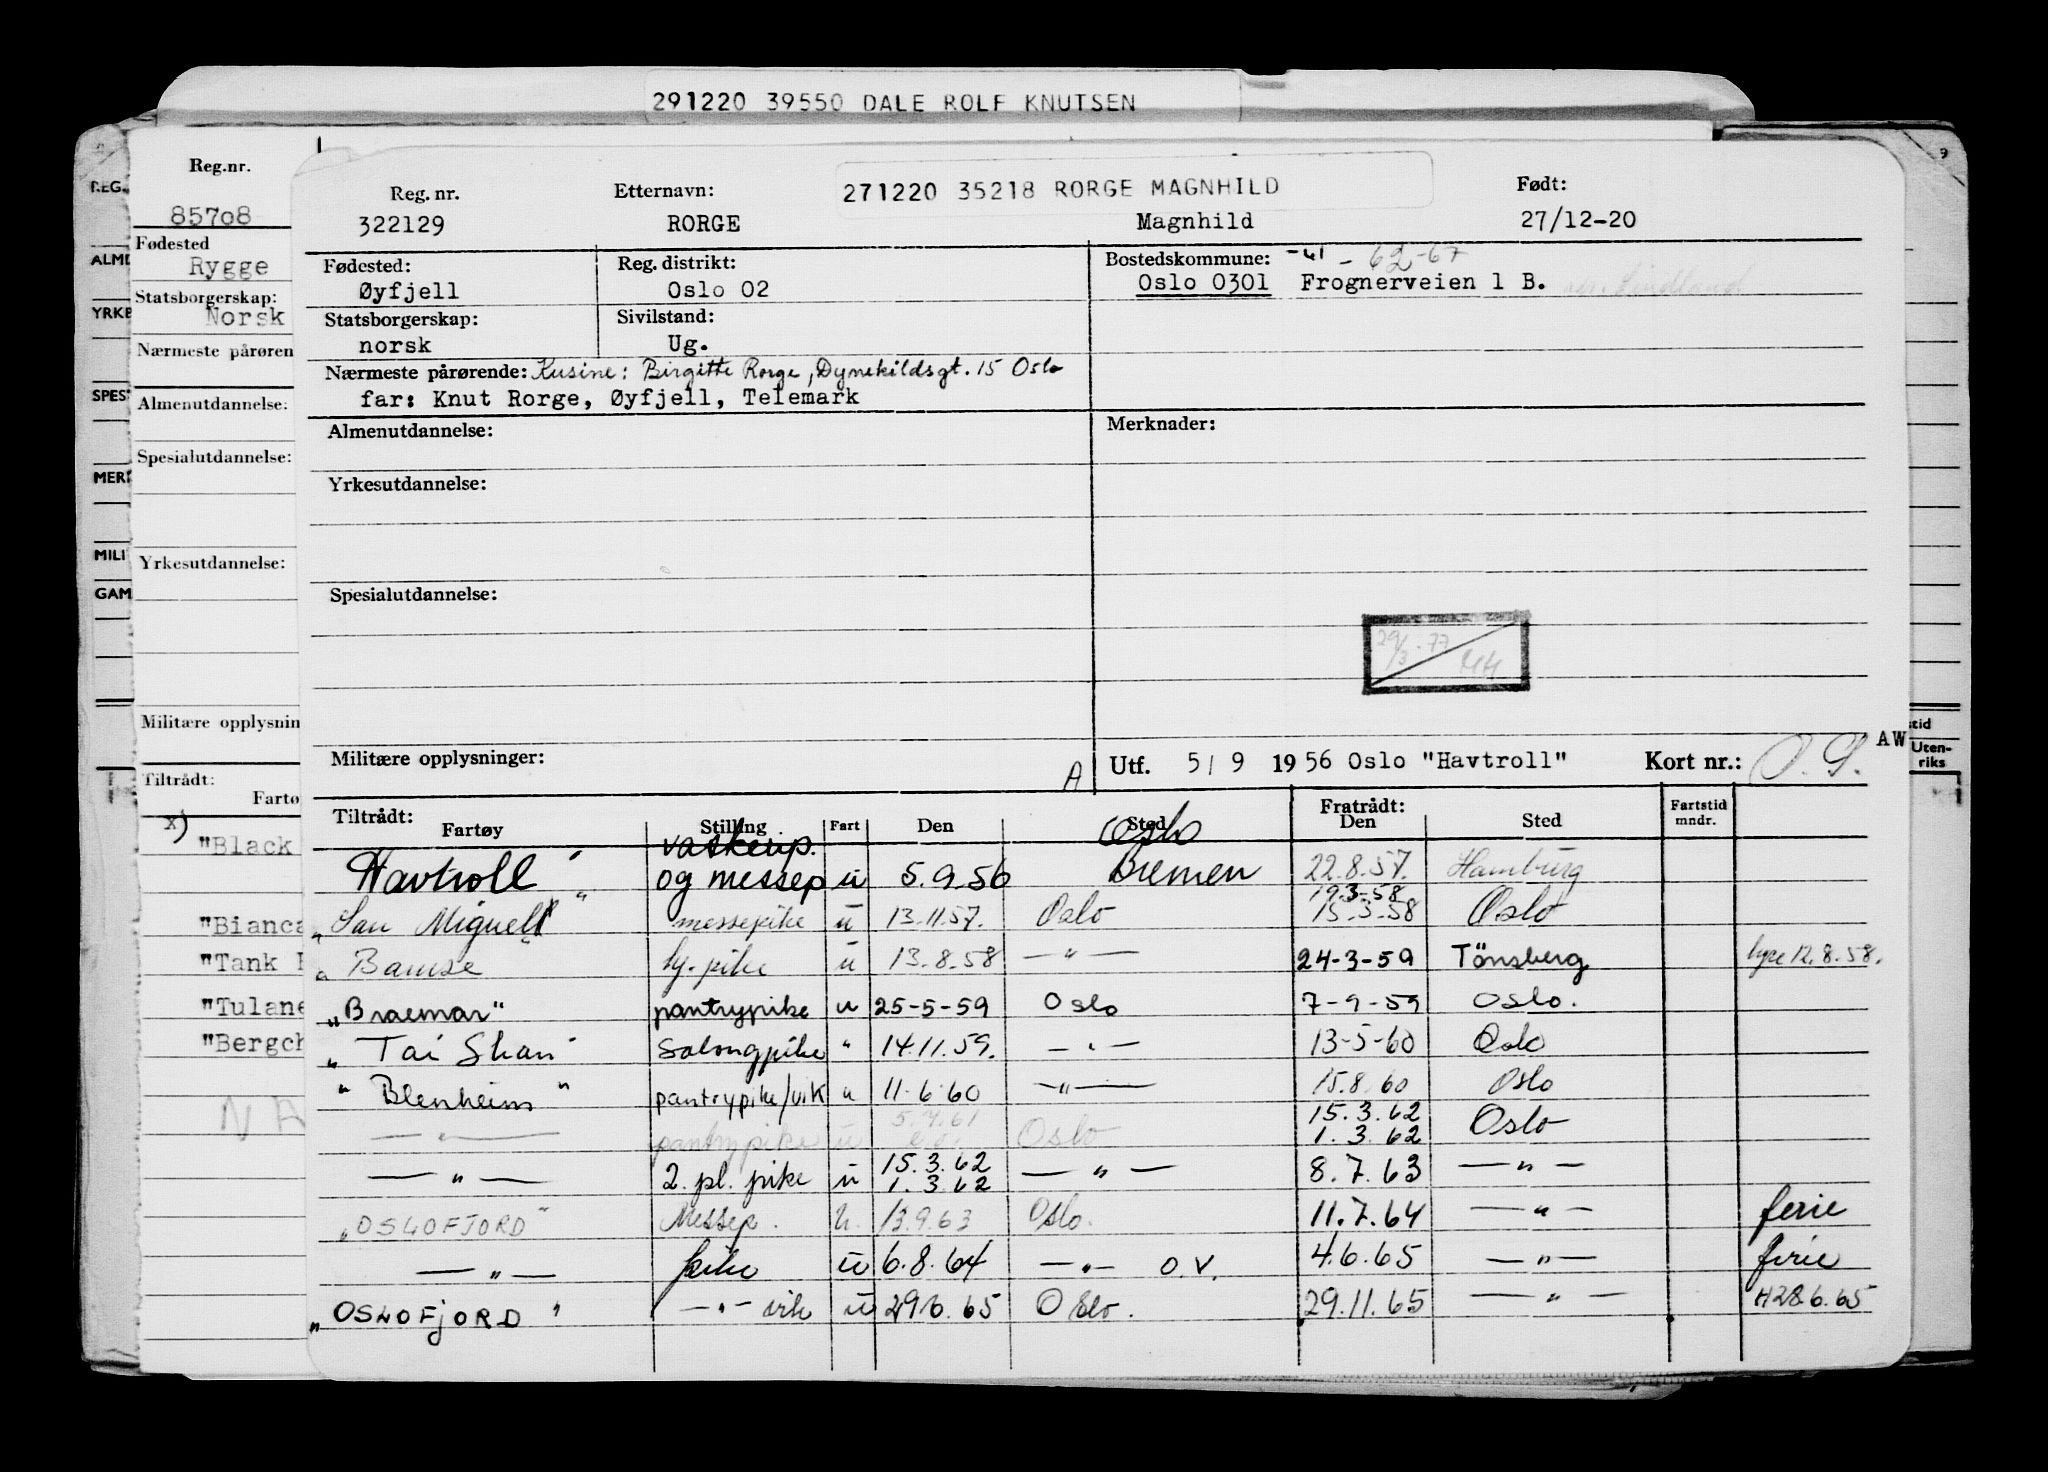 291220 39550 DALE ROLF KNUTSEN
Reg.nr.
85708
Fødested
Rygge
Statsborgerskap:
Norsk
Nærmeste pårøren
Almenutdannelse:
Spesialutdannelse:
Yrkesutdannelse:
Militære opplysnin
Tiltrådt:
Fartø
x)
"Black
"Bianca
"Tank
"Tulane
"Bergch
REG.
ALM
YRKE
SPES
MER
MILI
GAM
9
Reg. nr. Etternavn: 271220 35218 RORGE MAGNHILD Født:
322129 RORGE Magnhild 27/12-20
Fødested: Reg. distrikt: Bostedskommune: -41 - 62-67
Øyfjell Oslo 02 Oslo 0301 Frognerveien 1 B.
Statsborgerskap: Sivilstand:
norsk Ug.
Nærmeste pårørende: Kusine: Birgitte Rorge, Dynekildsgt. 15 Oslo
far: Knut Rorge, Øyfjell, Telemark
Almenutdannelse: Merknader:
Yrkesutdannelse:
Spesialutdannelse:
29/3-77
Militære opplysninger: A Utf. 5/9 1956 Oslo "Havtroll" Kort nr.: O.S. AW
stid
Uten-
riks
Tiltrådt: Fratrådt: Fartstid
Fartøy Stilling Fart Den Sted Den Sted mndr.
vaskerip. Oslo
Havtroll" og messep ü 5.9.56 Bremen 22.8.57. Hamburg
19.3-58
"San Miguell" messepike ü 13.11.57. Oslo 15-3-58 Oslo
" Bamse " by.pike ü 13.8.58 — " — 24-3-59 Tönsberg hyre 12.8.58.
"Braemar" pantrypike u 25-5-59 Oslo 7-9-59 Oslo.
" Tai Shan" Salongpike " 14.11.59. — " — 13-5-60 Oslo
" Blenheim " pantrypike/vik u 11.6.60 — " — 15.8.60 Oslo
5.4.61 15.3.62
— " — pantrypike ü Oslo 1.3.62 Oslo
15.3.62
— " — 2. pl. pike ü 1.3.62 — " — 8.7.63 — " —
"OSLOFJORD" Messep. u. 13.9.63 Oslo. 11.7.64 — " — ferie
— " — pike ü 6.8.64 — " — O.V. 4.6.65 — " — ferie
"OSLOFJORD " — " — vik ü 29.6.65 Oslo. 29.11.65 — " — H28.6.65